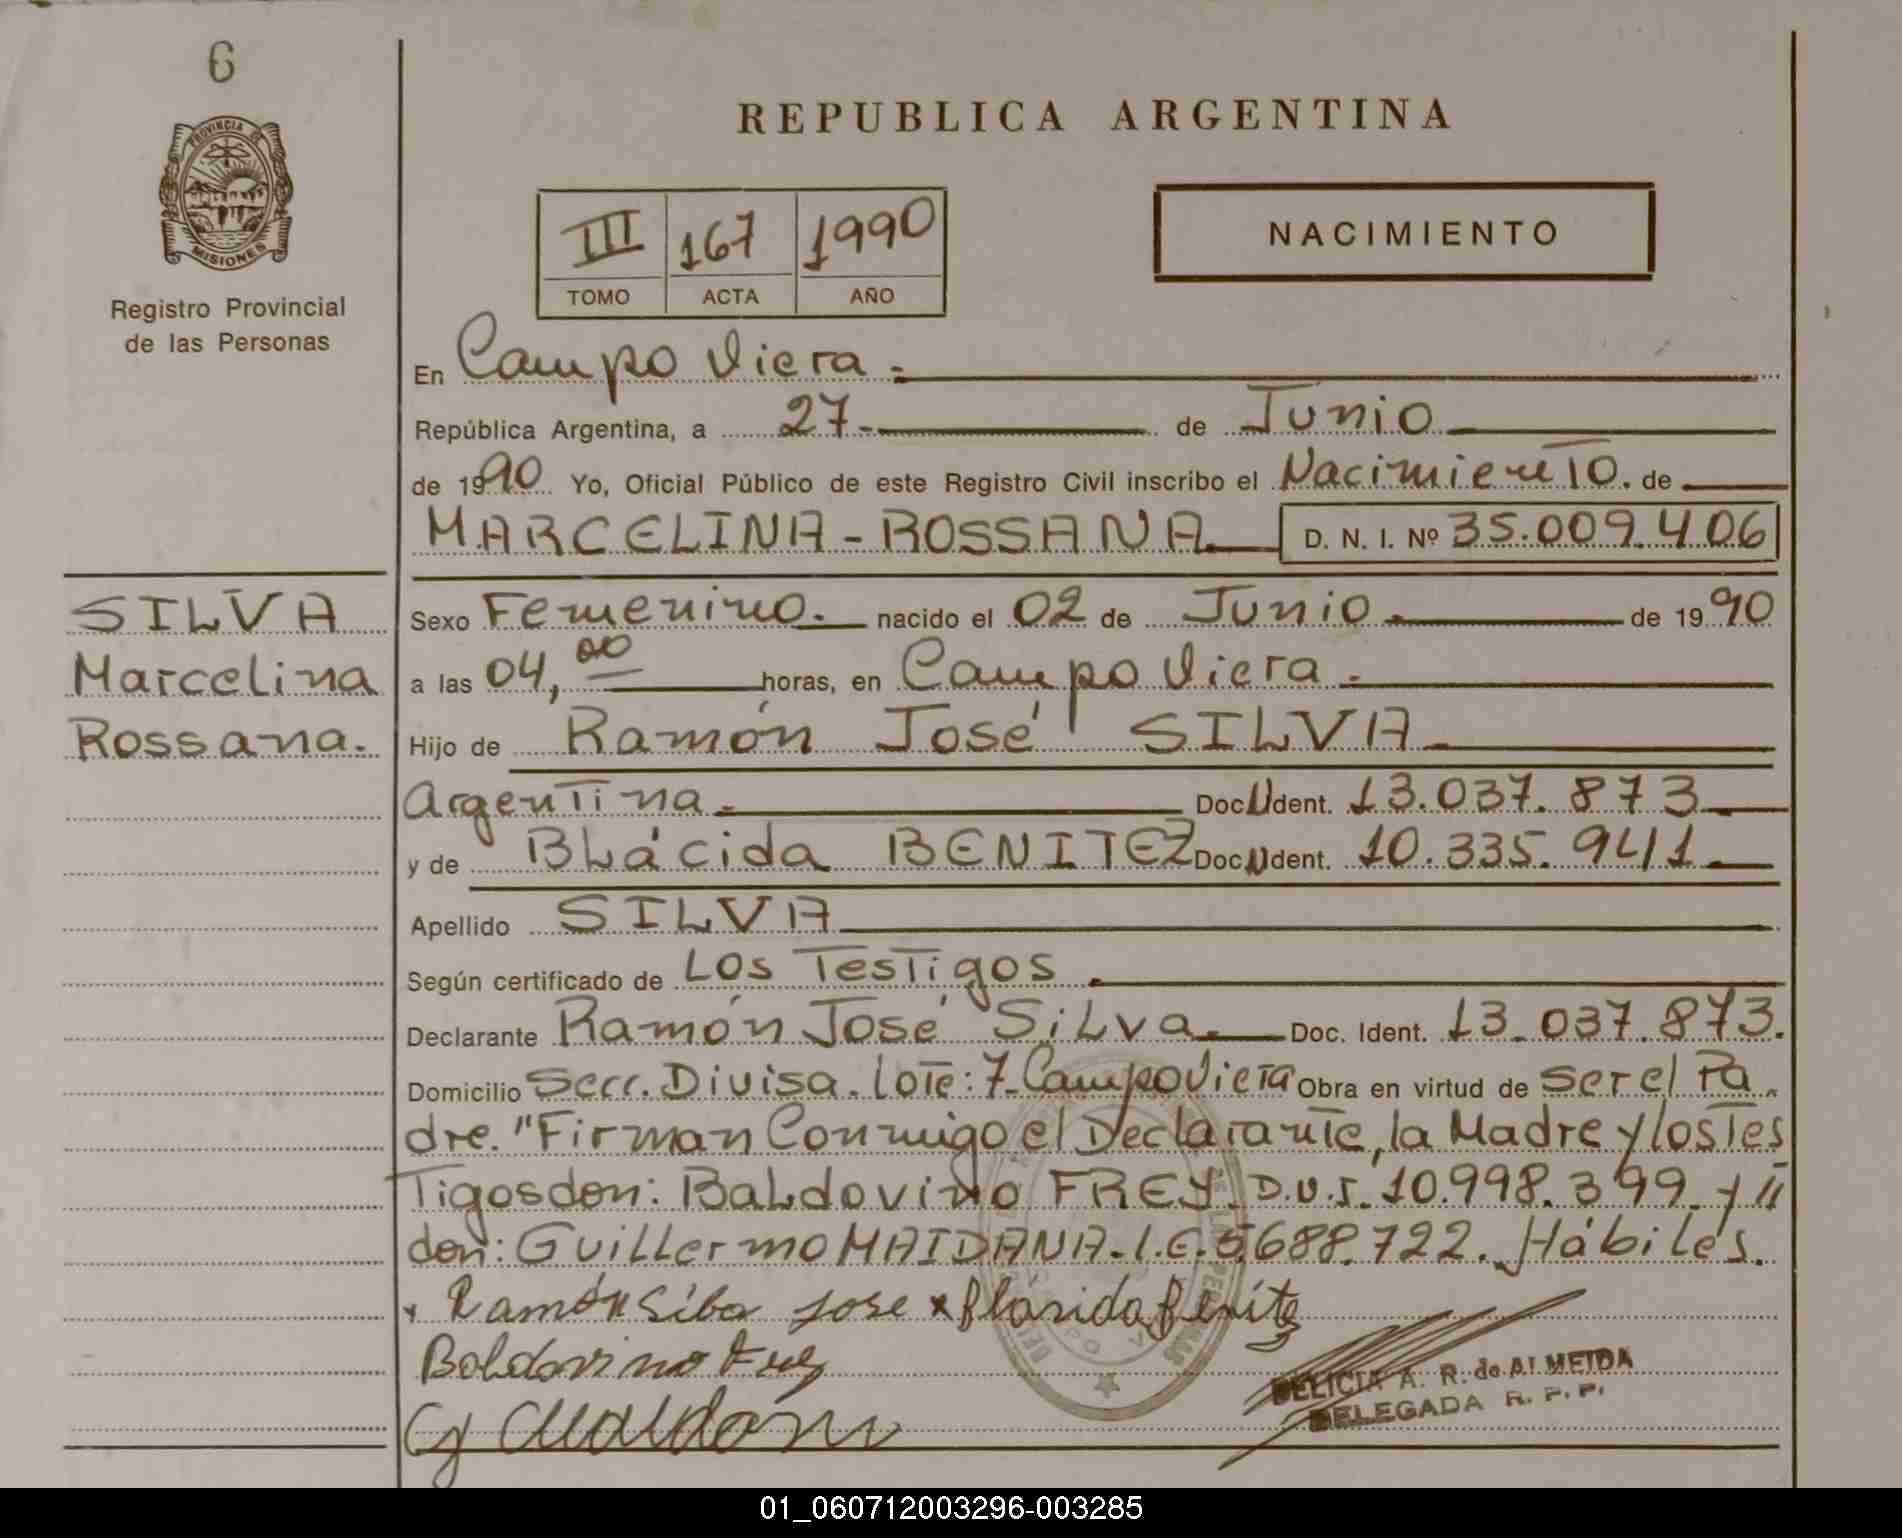 6
PROVINCIA DE
MISIONES
Registro Provincial
de las Personas
SILVA
Marcelina
Rossana.
REPUBLICA ARGENTINA
III 167 1990
TOMO ACTA AÑO
NACIMIENTO
En Campo Viera.
República Argentina, a 27 de Junio
de 1990 Yo, Oficial Público de este Registro Civil inscribo el Nacimiento. de
MARCELINA-ROSSANA D. N. I. Nº 35.009.406
Sexo Femenino. nacido el 02 de Junio. de 1990
a las 04,00 horas, en Campo Viera.
Hijo de Ramón José SILVA
Argentina. Doc.Ident. 13.037.873
y de BLácida BENITEZ Doc.Ident. 10.335.941
Apellido SILVA
Según certificado de Los Testigos.
Declarante Ramón José SiLva. Doc. Ident. 13.037.873.
Domicilio Secc. Divisa. Lote: 7-Campo Viera Obra en virtud de ser el Pa
dre. "Firman Conmigo el Declarante, la Madre y los Tes
Tigos don: BaLdovino FREY. D.U.I. 10.998.399. y
don: GuiLLermo MAIDANA. L.E. 5.688.722. HábiLes.
x Ramón Silba Jose x Blásida Benitez
Boldovino Frey
G
DELICIA A. R. de ALMEIDA
DELEGADA R. P. P.
01_060712003296-003285